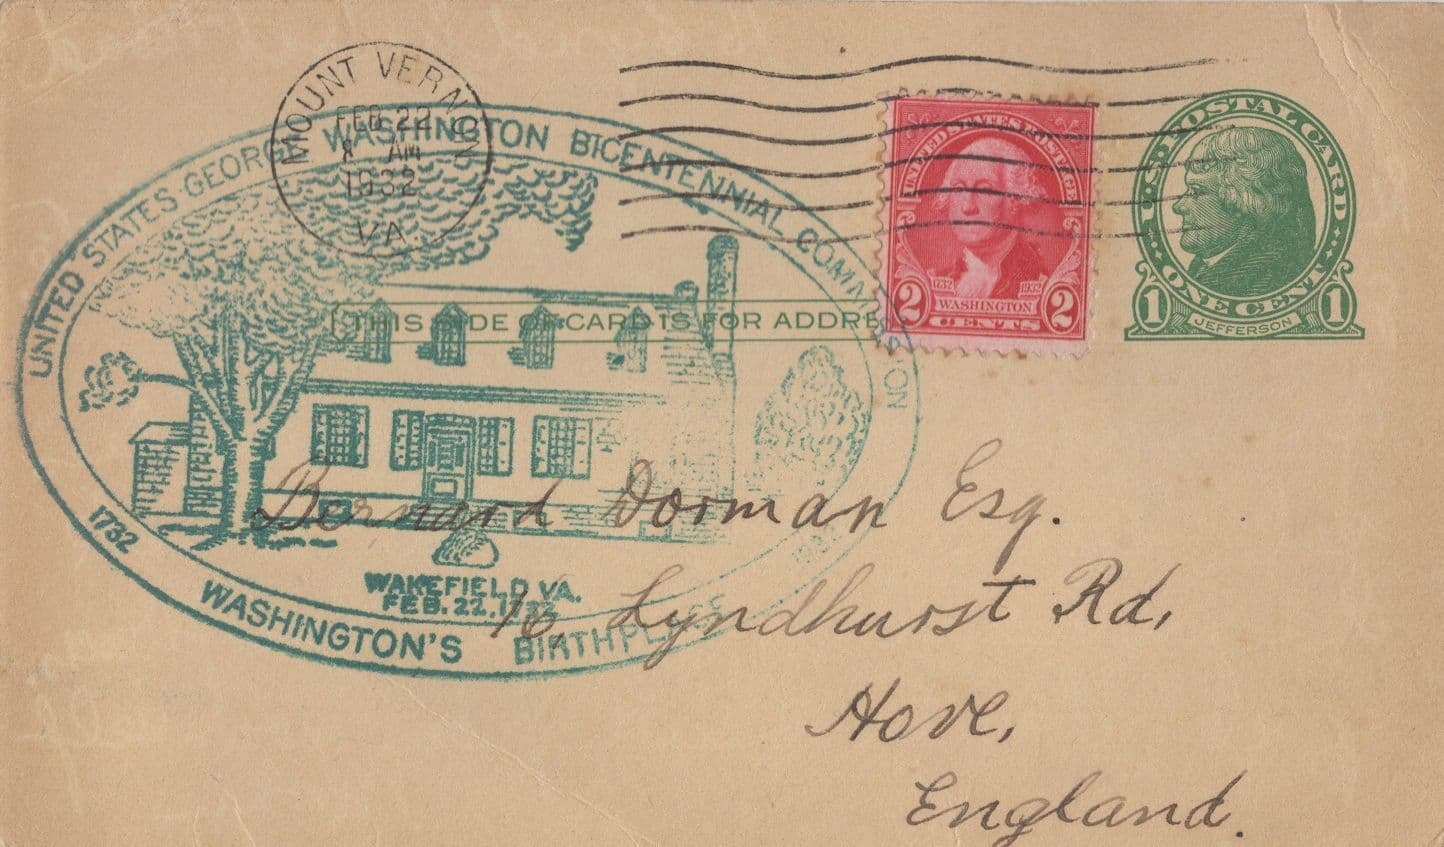 MOUNT VERNON
FEB 22
8 AM
1932
VA.
UNITED STATES GEORGE WASHINGTON BICENTENNIAL COMMISSION
UNITED STATES POSTAGE
1732 1932
WASHINGTON
2 CENTS 2
U·S·POSTAL CARD
ONE CENT
1 1
JEFFERSON
THIS SIDE OF CARD IS FOR ADDRE
Bernard Dorman Esq.
16, Lyndhurst Rd,
Hove,
England.
WAKEFIELD, VA.
FEB. 22. 1732
1732
WASHINGTON'S BIRTHPLACE